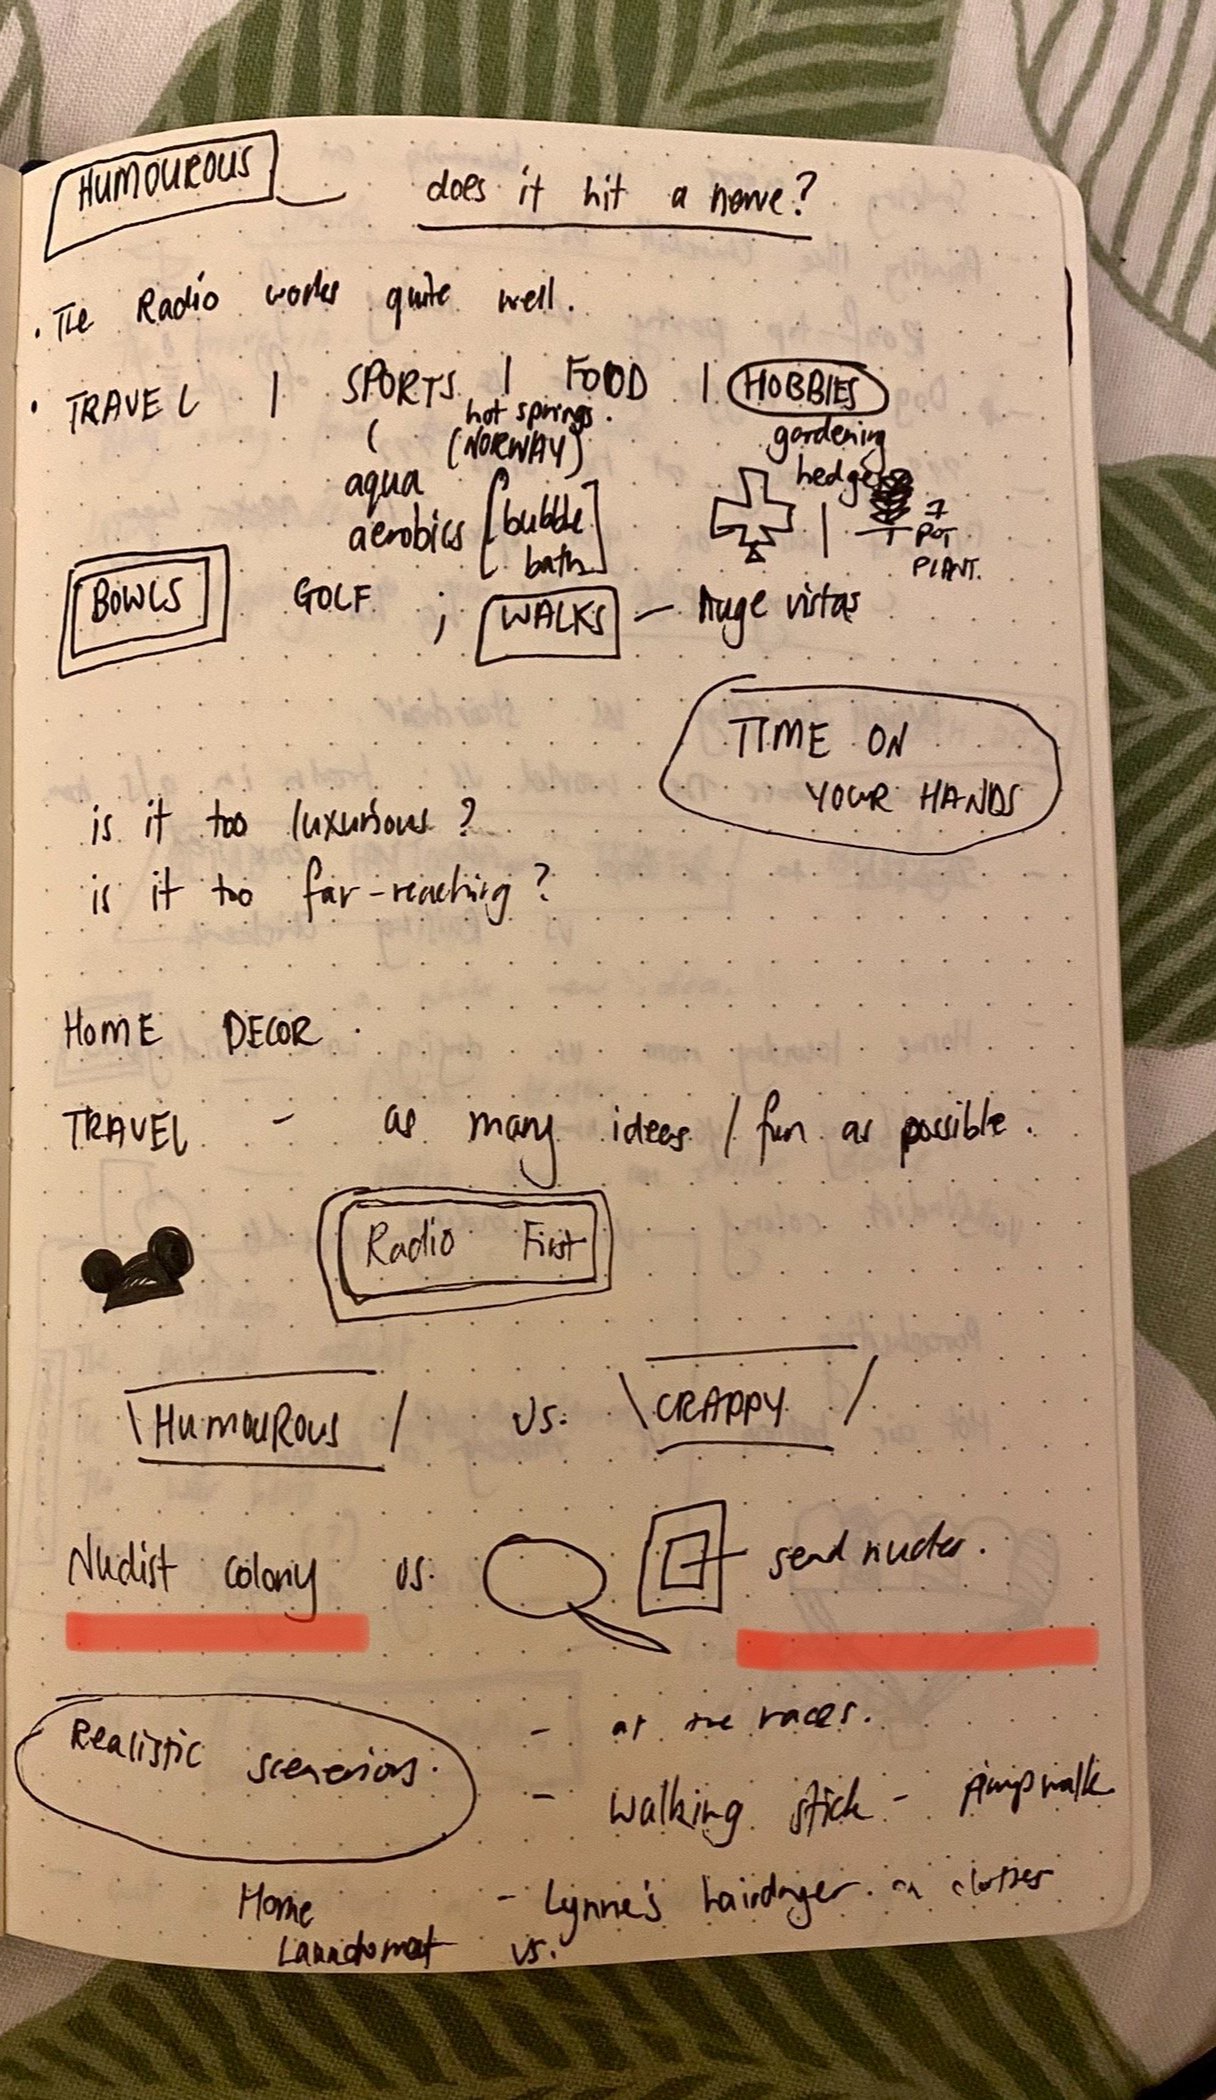 HUMOUROUS does it hit a nerve?
. The Radio works quite well.
. TRAVEL | SPORTS | FOOD | HOBBIES
hot springs.
(NORWAY)
gardening
hedge
aqua
aerobics [bubble
bath]
POT
PLANT.
BOWLS GOLF ; WALKS - Huge vistas
TIME ON
YOUR HANDS
is it too luxurious?
is it too far-reaching?
HOME DECOR.
TRAVEL - as many ideas / fun as possible.
Radio First
\HUMOUROUS/ vs. \CRAPPY/
Nudist colony vs. send nudes.
Realistic scenarios.
- at the races.
- walking stick - pimp walk
Home
Laundromat vs.
- Lynne's hairdryer. on clothes